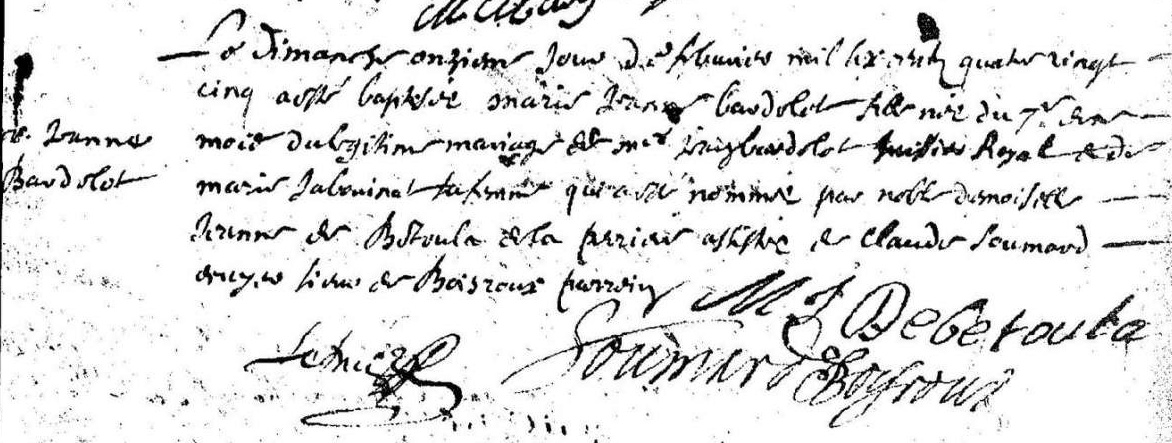 Le dimanche onziesme Jour de febvrier mil six cents quatre vingt
cinq a esté baptisée marie Jeanne bardolot fille née du 7e du
mois du legitime mariage de mre bardolot huissier Royal et de
marie Jabouinat sa femme qui a esté nommée par noble damoiselle
Jeanne de Bétoula de la perriere assistée de Claude Soumard
escuyer sieur de Boisroux parrein
Jeanne
Bardolot
M J Debetoula
Soumard de Boisroux